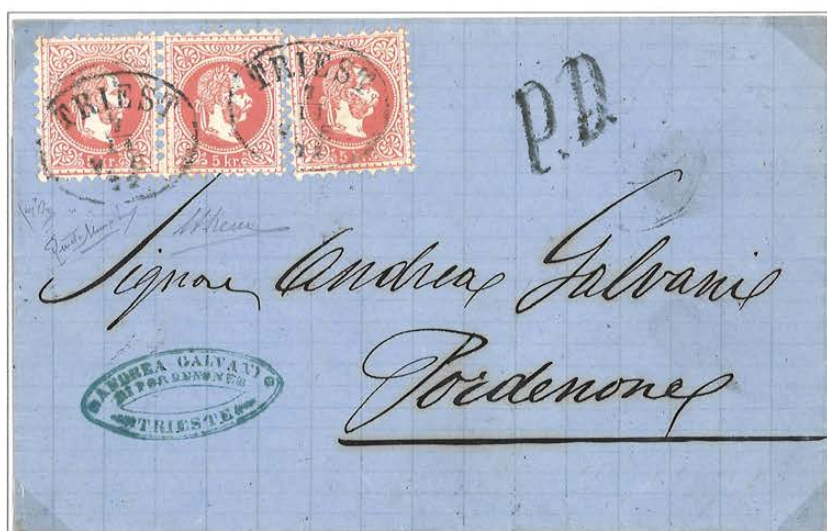 TRIEST
TRIEST
P.D.
5 kr.
5 kr.
5 kr.
Signore Andrea Galvani
Pordenone
ANDREA GALVANI
DI PORDENONE
TRIESTE